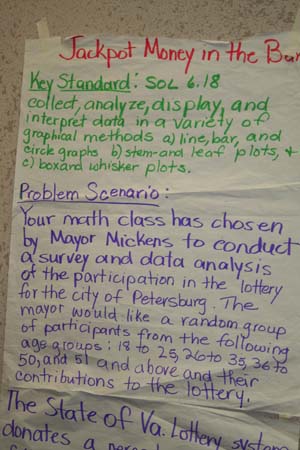 Jackpot Money in the
Key Standard: SOL 6.18
collect, analyze, display, and
interpret data in a variety of
graphical methods a) line, bar, and
circle graphs b) stem-and leaf plots, &
c) box and whisker plots.
Problem Scenario:
Your math class has chosen
by Mayor Mickens to conduct
a survey and data analysis
of the participation in the lottery
for the city of Petersburg. The
mayor would like a random group
of participants from the following
age groups: 18 to 25, 26 to 35, 36 to
50, and 51 and above and their
contributions to the lottery.
The State of Va. Lottery
donates a